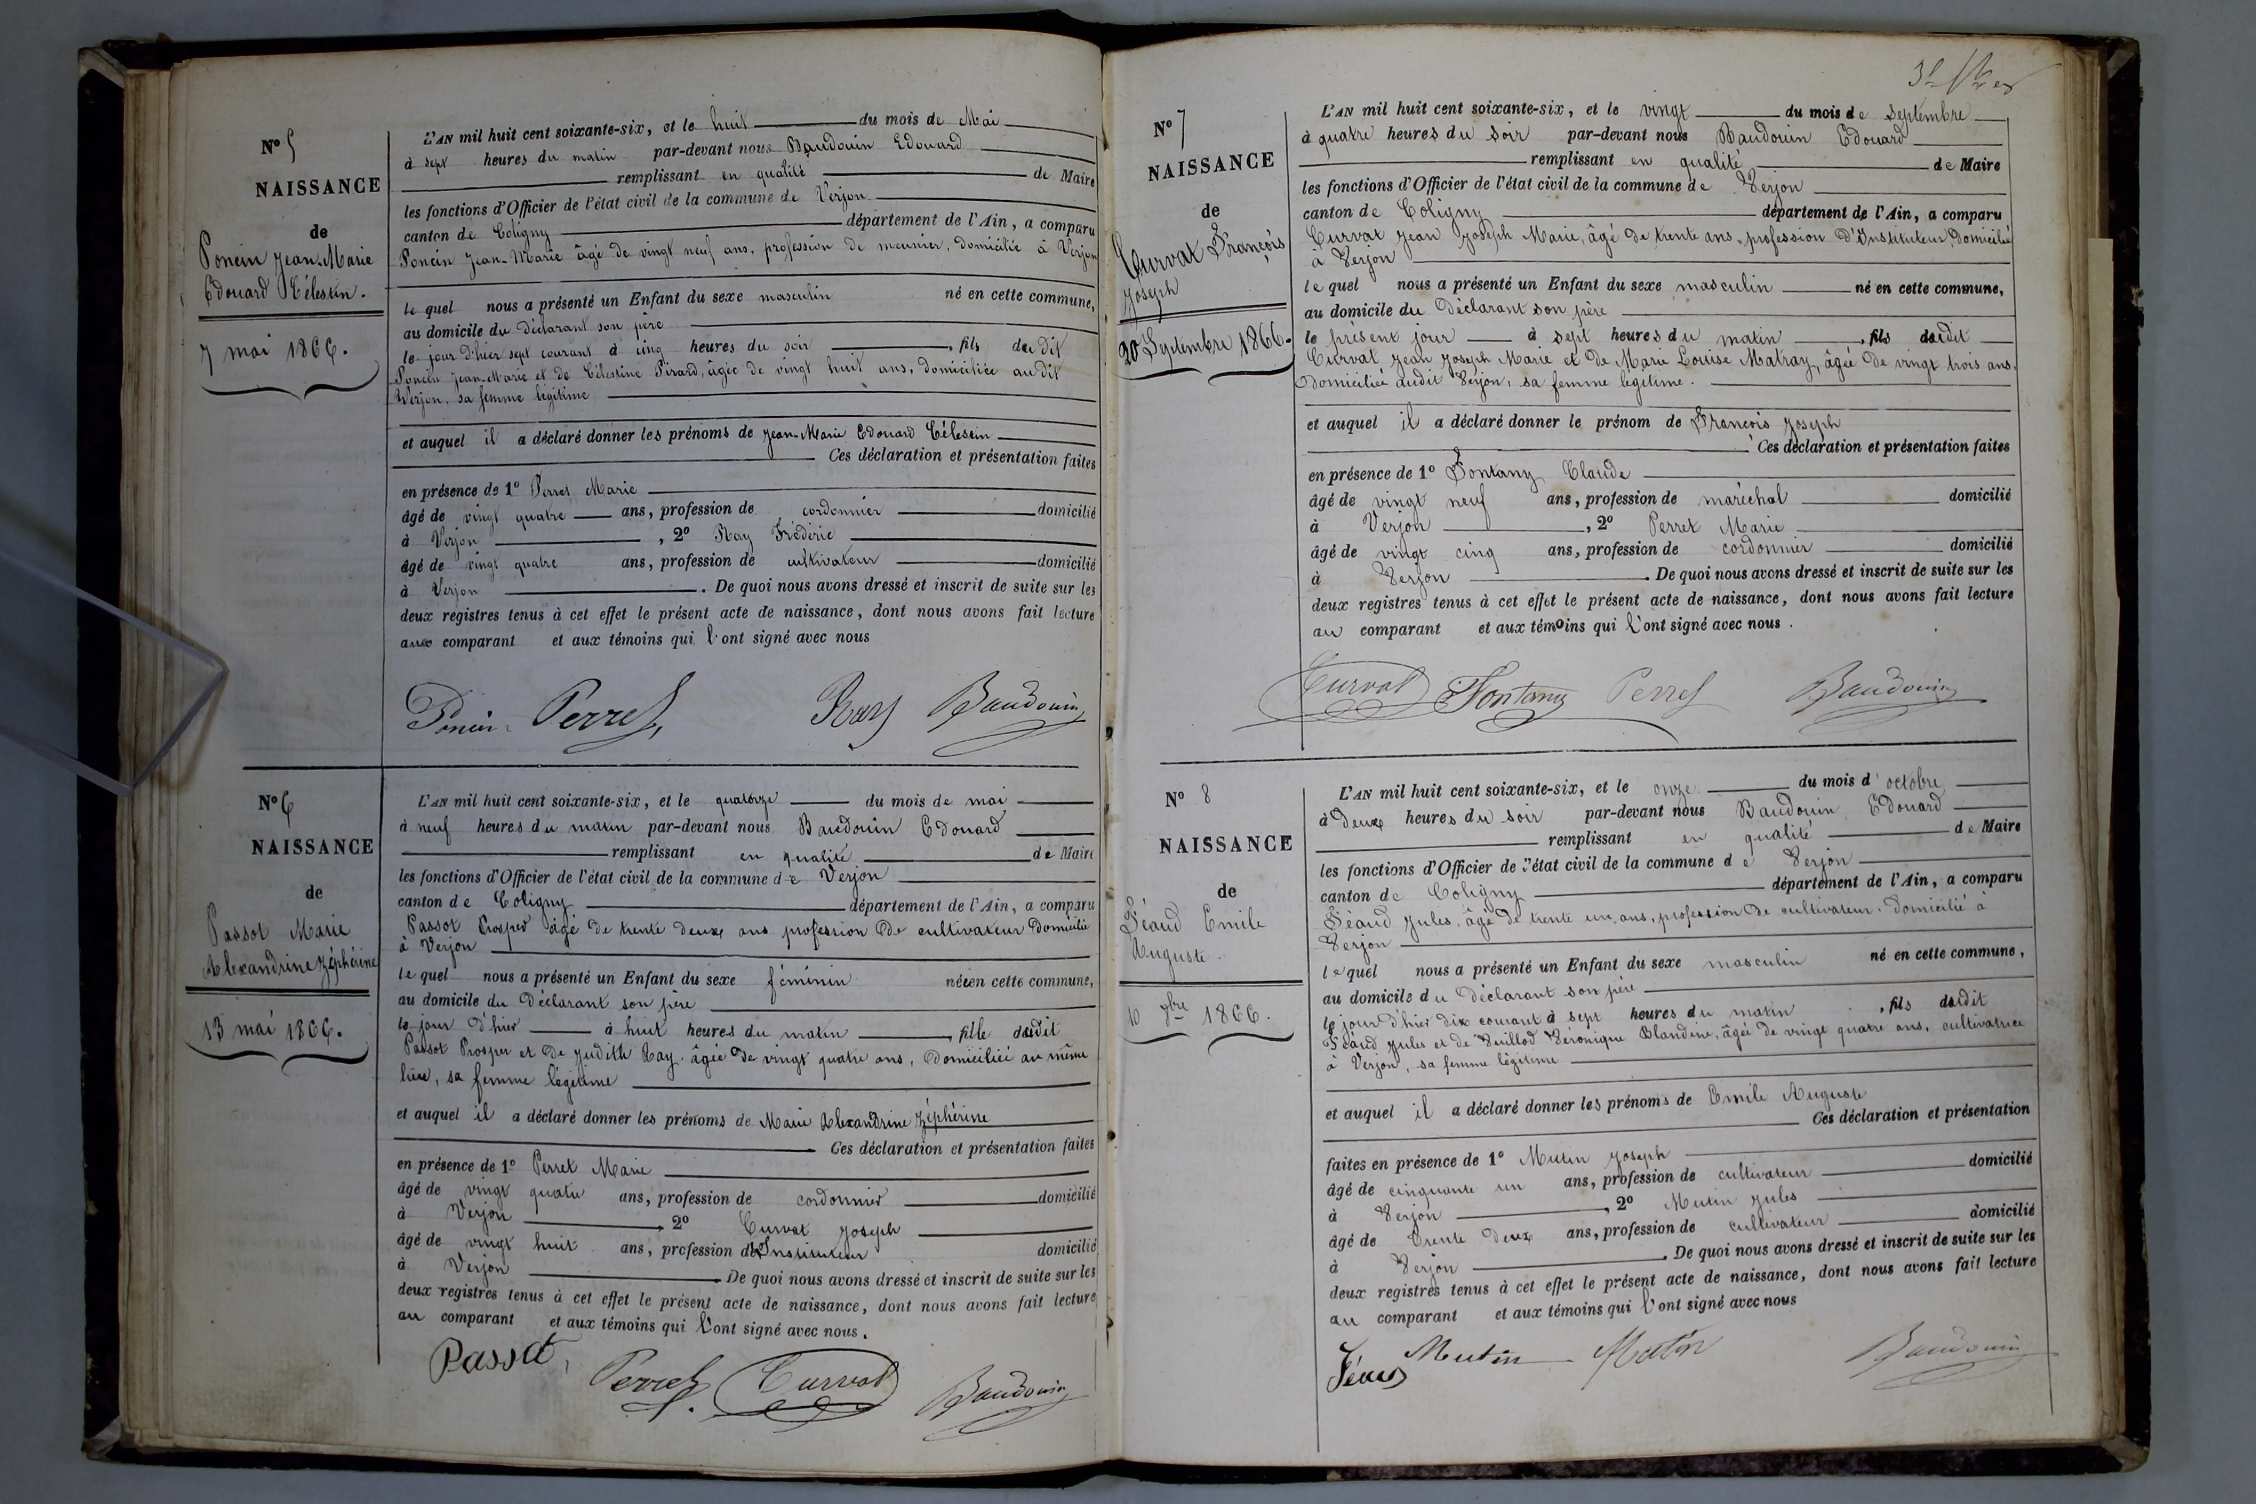 N° 5
NAISSANCE
de
Poncin Jean-Marie
Edouard Célestin.
7 mai 1866.
L'AN mil huit cent soixante-six, et le huit du mois de Mai
à sept heures du matin par-devant nous Baudouin Edouard
remplissant en qualité de Maire
les fonctions d'Officier de l'état civil de la commune de Verjon
canton de Coligny département de l'Ain, a comparu
Poncin Jean-Marie âgé de vingt neuf ans, profession de meunier, domicilié à Verjon
le quel nous a présenté un Enfant du sexe masculin né en cette commune,
au domicile du déclarant son père
le jour d'hier sept courant à cinq heures du soir, fils du dit
Poncin Jean-Marie et de Célestine Pirard, âgée de vingt huit ans, domiciliée au dit
Verjon, sa femme légitime
et auquel il a déclaré donner les prénoms de Jean-Marie Edouard Célestin
Ces déclaration et présentation faites
en présence de 1° Perret Marie
âgé de vingt quatre ans, profession de cordonnier domicilié
à Verjon, 2° Ray Frédéric
âgé de vingt quatre ans, profession de cultivateur domicilié
à Verjon. De quoi nous avons dressé et inscrit de suite sur les
deux registres tenus à cet effet le présent acte de naissance, dont nous avons fait lecture
au comparant et aux témoins qui l'ont signé avec nous
Poncin Perret Ray Baudouin
N° 6
NAISSANCE
de
Passot Marie
Alexandrine Zéphérine
13 mai 1866.
L'AN mil huit cent soixante-six, et le quatorze du mois de mai
à neuf heures du matin par-devant nous Baudouin Edouard
remplissant en qualité de Maire
les fonctions d'Officier de l'état civil de la commune de Verjon
canton de Coligny département de l'Ain, a comparu
Passot Prosper âgé de trente deux ans profession de cultivateur domicilié
à Verjon
le quel nous a présenté un Enfant du sexe féminin née en cette commune,
au domicile du déclarant son père
le jour d'hier à huit heures du matin, fille dudit
Passot Prosper et de Judith Ray, âgée de vingt quatre ans, domiciliée au même
lieu, sa femme légitime
et auquel il a déclaré donner les prénoms de Marie Alexandrine Zéphérine
Ces déclaration et présentation faites
en présence de 1° Perret Marie
âgé de vingt quatre ans, profession de cordonnier domicilié
à Verjon, 2° Curvat Joseph
âgé de vingt huit ans, profession d'Instituteur domicilié
à Verjon. De quoi nous avons dressé et inscrit de suite sur les
deux registres tenus à cet effet le présent acte de naissance, dont nous avons fait lecture
au comparant et aux témoins qui l'ont signé avec nous.
Passot, Perret Curvat Baudouin
N° 7
NAISSANCE
de
Curvat François
Joseph
20 Septembre 1866.
L'AN mil huit cent soixante-six, et le vingt du mois de septembre
à quatre heures du soir par-devant nous Baudouin Edouard
remplissant en qualité de Maire
les fonctions d'Officier de l'état civil de la commune de Verjon
canton de Coligny département de l'Ain, a comparu
Curvat Jean Joseph Marie, âgé de trente ans, profession d'Instituteur, domicilié
à Verjon
le quel nous a présenté un Enfant du sexe masculin né en cette commune,
au domicile du déclarant son père
le présent jour à sept heures du matin, fils dudit
Curvat Jean Joseph Marie et de Marie Louise Matray, âgée de vingt trois ans,
domiciliée audit Verjon, sa femme légitime.
et auquel il a déclaré donner le prénom de François Joseph
Ces déclaration et présentation faites
en présence de 1° Fontany Claude
âgé de vingt neuf ans, profession de maréchal domicilié
à Verjon, 2° Perret Marie
âgé de vingt cinq ans, profession de cordonnier domicilié
à Verjon. De quoi nous avons dressé et inscrit de suite sur les
deux registres tenus à cet effet le présent acte de naissance, dont nous avons fait lecture
au comparant et aux témoins qui l'ont signé avec nous.
Curvat Fontany Perret Baudouin
N° 8
NAISSANCE
de
Féaud Emile
Auguste.
10 8bre 1866.
L'AN mil huit cent soixante-six, et le onze du mois d'octobre
à deux heures du soir par-devant nous Baudouin Edouard
remplissant en qualité de Maire
les fonctions d'Officier de l'état civil de la commune de Verjon
canton de Coligny département de l'Ain, a comparu
Féaud Jules, âgé de trente un ans, profession de cultivateur, domicilié à
Verjon
le quel nous a présenté un Enfant du sexe masculin né en cette commune,
au domicile du déclarant son père
le jour d'hier dix courant à sept heures du matin, fils dudit
Féaud Jules et de Vuillod Véronique Blandine, âgée de vingt quatre ans, cultivatrice
à Verjon, sa femme légitime
et auquel il a déclaré donner les prénoms de Emile Auguste
Ces déclaration et présentation
faites en présence de 1° Mutin Joseph
âgé de cinquante un ans, profession de cultivateur domicilié
à Verjon, 2° Mutin Jules
âgé de trente deux ans, profession de cultivateur domicilié
à Verjon. De quoi nous avons dressé et inscrit de suite sur les
deux registres tenus à cet effet le présent acte de naissance, dont nous avons fait lecture
au comparant et aux témoins qui l'ont signé avec nous
Féaud Mutin Mutin Baudouin